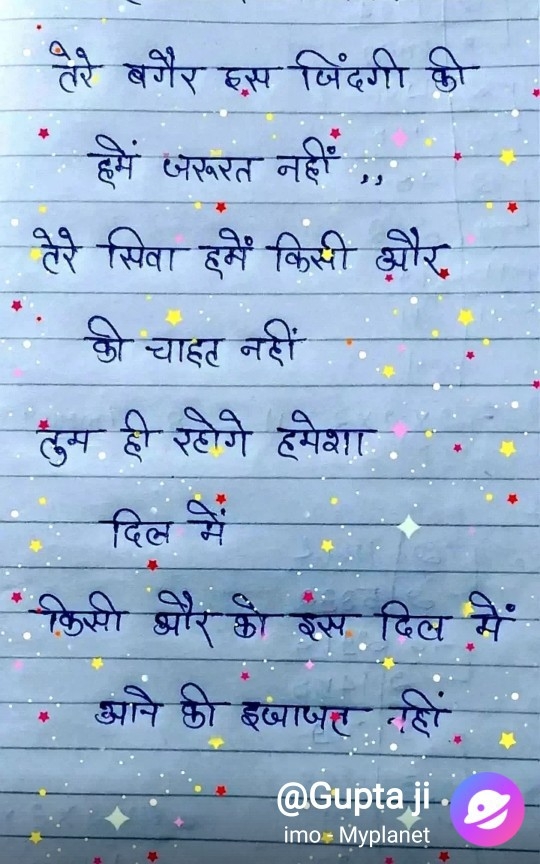 तेरे बगैर इस जिंदगी की
हमें जरूरत नहीं ,,
तेरे सिवा हमें किसी और
की चाहत नहीं
तुम ही रहोगे हमेशा
दिल में
किसी और को इस दिल में
आने की इजाजत नहीं
@Gupta ji
imo - Myplanet